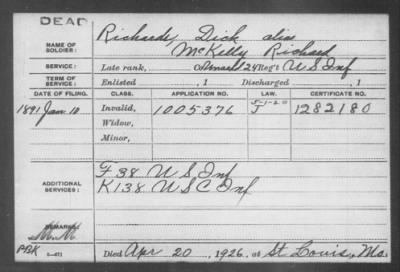 DEAD
NAME OF SOLDIER: Richards, Dick alias
McKelly Richard
SERVICE: Late rank, 24 Reg't U S Inf
TERM OF SERVICE: Enlisted , 1 Discharged , 1
DATE OF FILING. CLASS. APPLICATION NO. LAW. CERTIFICATE NO.
5-1-20
1891 Jan. 10 Invalid, 1005376 J 1282180
Widow,
Minor,
ADDITIONAL SERVICES: F 38 U S Inf
K 138 U S C Inf
REMARKS:
PBK
Died Apr 20, 1926, at St Louis, Mo.